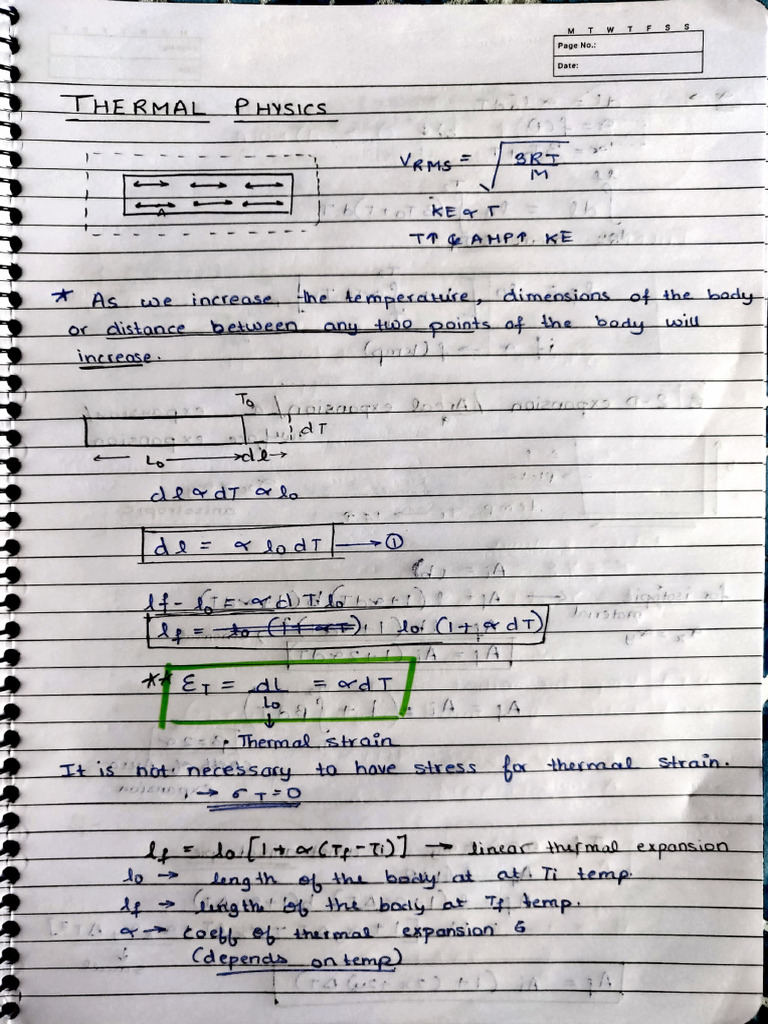 M T W T F S S
Page No.:
Date:
THERMAL PHYSICS
V RMS = √ 3RT
M
A
KE ∝ T
T↑ & AMP↑, KE
* As we increase the temperature, dimensions of the body
or distance between any two points of the body will
increase.
T0
dT
← L0 → dl →
dl ∝ dT ∝ l0
dl = ∝ l0 dT → ①
lf - l0 = ∝ dT l0
lf = l0 (1 + ∝ dT)
** ƐT = dL = ∝dT
L0
↓
Thermal strain
It is not necessary to have stress for thermal strain.
→ σT = 0
lf = l0 [1 + ∝ (Tf - Ti)] → linear thermal expansion
l0 → length of the body at at Ti temp.
lf → length of the body at Tf temp.
∝ → coeff of thermal expansion
(depends on temp)